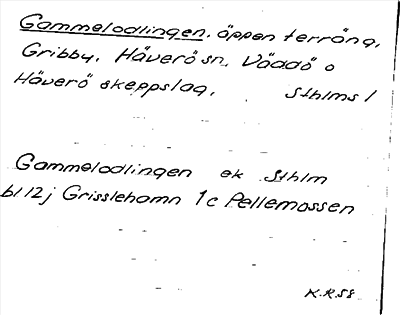 Gammelodlingen, öppen terräng,
Gribby, Häverö sn, Väddö o
Häverö skeppslag, Sthlms l
Gammelodlingen ek Sthlm
bl 12 j Grisslehamn 1c Pellemossen
K.R.58